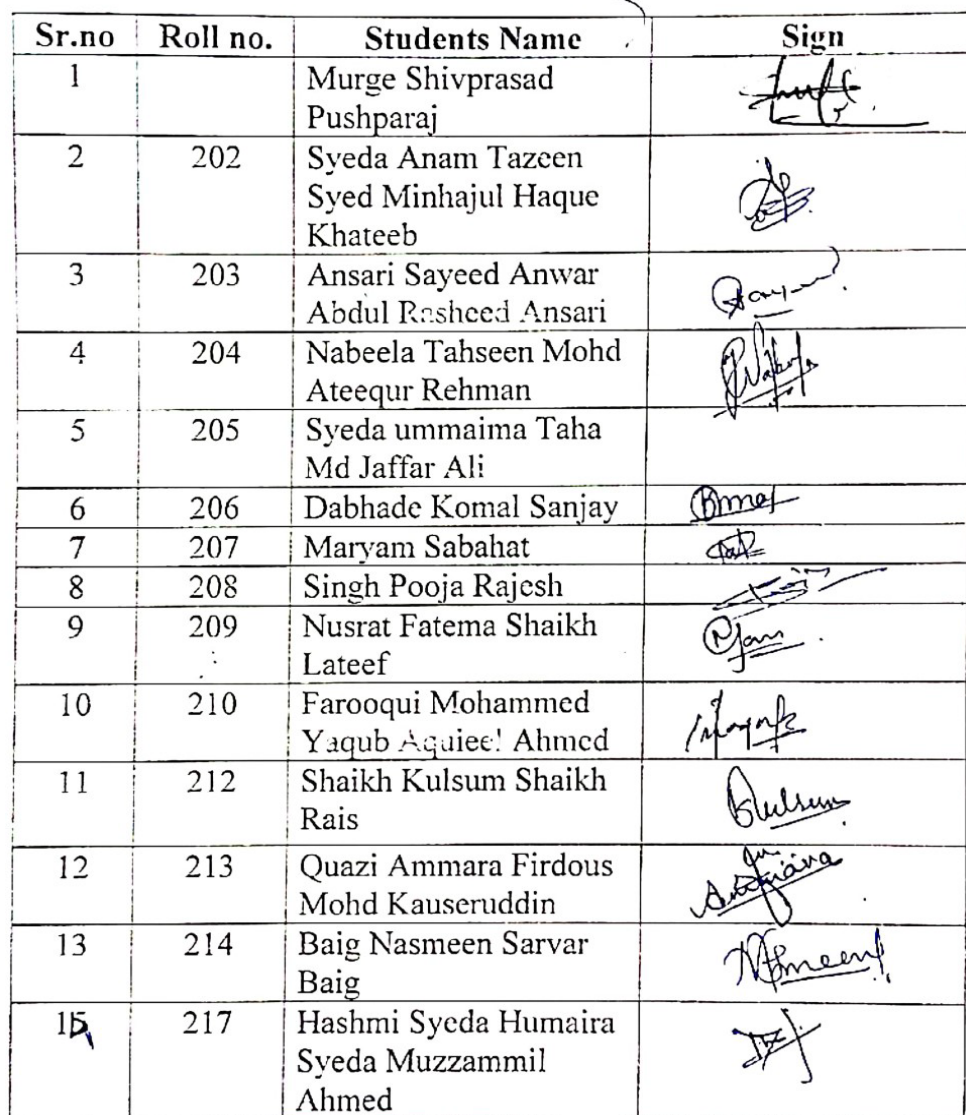 Sr.no Roll no. Students Name Sign
1 Murge Shivprasad
Pushparaj
2 202 Syeda Anam Tazeen
Syed Minhajul Haque
Khateeb
3 203 Ansari Sayeed Anwar
Abdul Rasheed Ansari
4 204 Nabeela Tahseen Mohd
Ateequr Rehman
5 205 Syeda ummaima Taha
Md Jaffar Ali
6 206 Dabhade Komal Sanjay
7 207 Maryam Sabahat
8 208 Singh Pooja Rajesh
9 209 Nusrat Fatema Shaikh
Lateef
10 210 Farooqui Mohammed
Yaqub Aquieel Ahmed
11 212 Shaikh Kulsum Shaikh Kulsum
Rais
12 213 Quazi Ammara Firdous
Mohd Kauseruddin
13 214 Baig Nasmeen Sarvar
Baig
217 Hashmi Syeda Humaira
Syeda Muzzammil
Ahmed